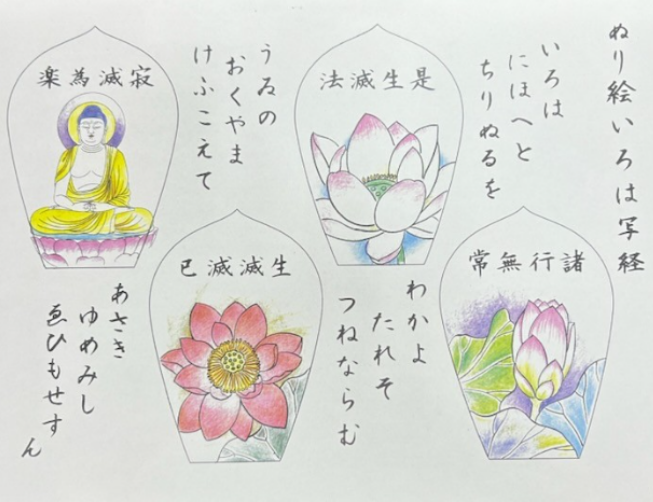 ぬり絵いろは写経
いろは
にほへと
ちりぬるを
諸行無常
わかよ
たれそ
つねならむ
是生滅法
うゐの
おくやま
けふこえて
生滅滅已
あさき
ゆめみし
ゑひもせすん
寂滅為楽